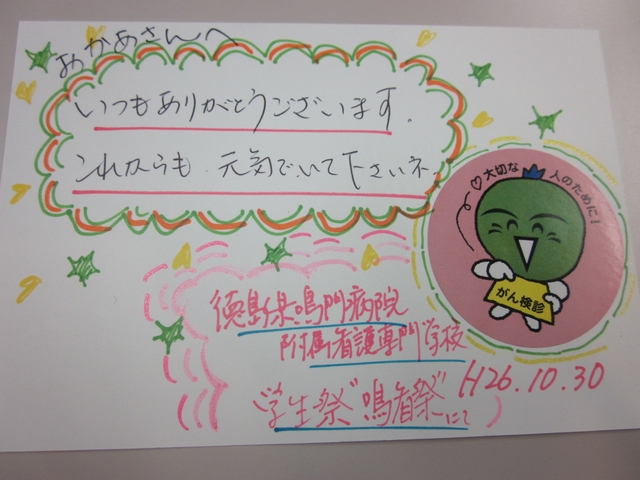 おかあさんへ
いつもありがとうございます。
これからも 元気でいて下さいネ。
♡大切な人のために!
がん検診
徳島県鳴門病院
附属看護専門学校
"学生祭"鳴看祭"にて
H26.10.30